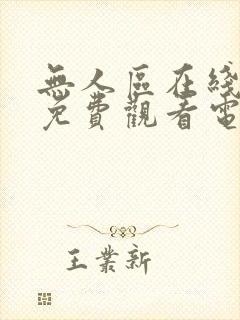 無人區在綫
免費觀看電
王業新